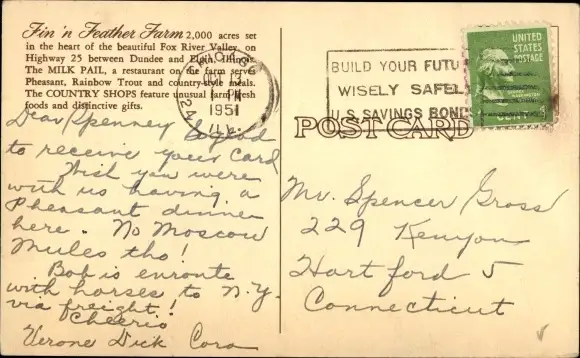 Fin 'n Feather Farm 2,000 acres set
in the heart of the beautiful Fox River Valley, on
Highway 25 between Dundee and Elgin, Illinois.
The MILK PAIL, a restaurant on the farm serves
Pheasant, Rainbow Trout and country-style meals.
The COUNTRY SHOPS feature unusual farm-fresh
foods and distinctive gifts.
Dear Spenney
to receive your card
Wish you were
with us having a
Pheasant dinner
here. No Moscow
Mules tho!
Bob is enroute
with horses to N.Y.
via freight!
Cheerio
Verone Dick Cora
OCT 3
1 PM
1951
ILL.
BUILD YOUR FUTU
WISELY SAFEL
SAVINGS BOND
POST CARD
UNITED
STATES
POSTAGE
WASHINGTON
Mr. Spencer Gross
229 Kenyon
Hartford 5
Connecticut